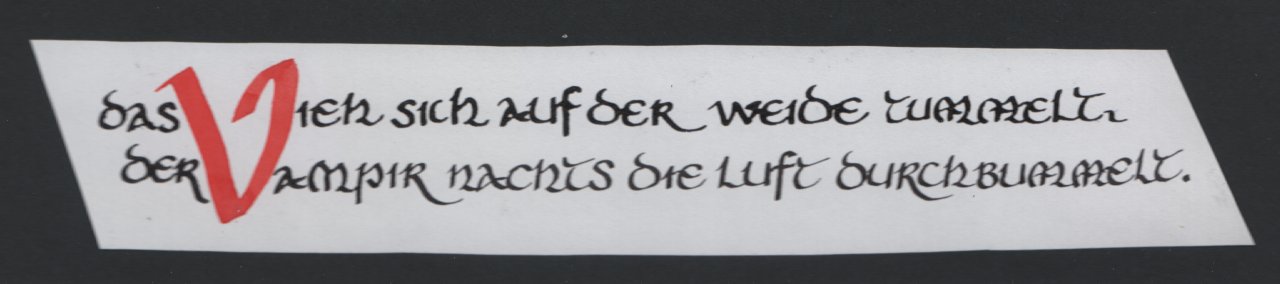 das Vieh sich auf der weide tummelt,
der Vampir nachts die Luft durchbummelt.